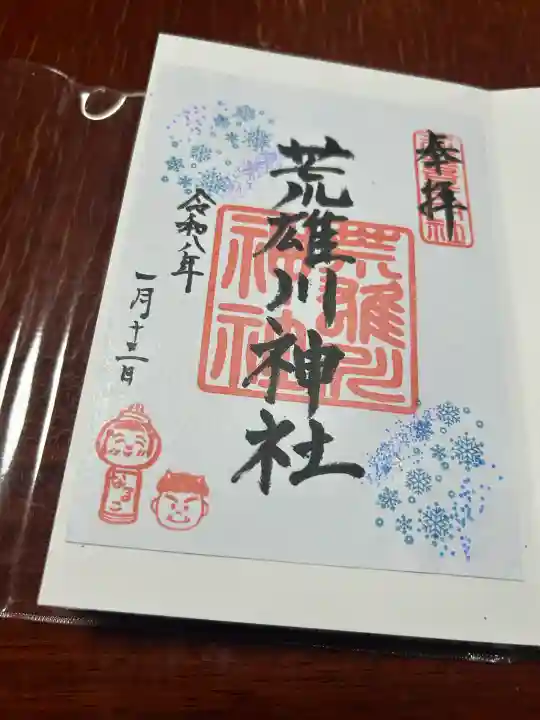 奉拝
荒雄川神社
荒雄川
神社
令和八年
一月十二日
なるこ